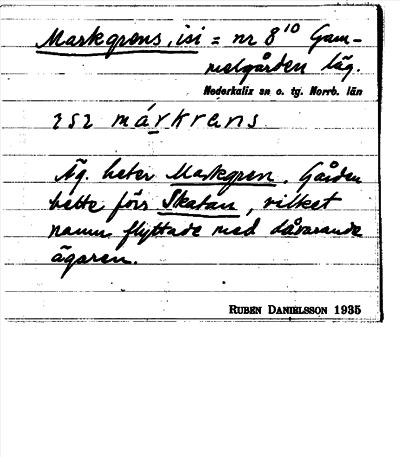 Markgrens, isi = nr 8¹⁰ Gam-
melgården läg.
Nederkalix sn o. tg. Norrb. län
ısı márkrens
Äg. heter Markgren. Gården
hette förr Skatan, vilket
namn flyttade med dåvarande
ägaren.
RUBEN DANIELSSON 1935